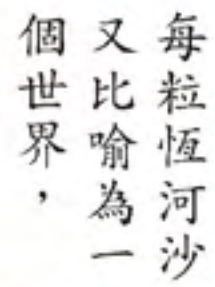 每粒恆河沙
又比喻為一
個世界，